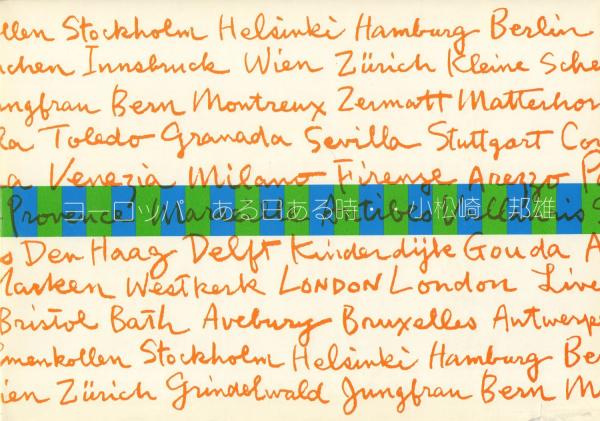 llen Stockholm Helsinki Hamburg Berlin
nchen Innsbruck Wien Zürich Kleine Sche
ungfrau Bern Montreux Zermatt Matterhor
Toledo Granada Sevilla Stuttgart Co
a Venezia Milano Firenze Arezzo P
Provence Marseille Antibes Vallauris S
ヨーロッパ・ある日ある時 小松崎 邦雄
s Den Haag Delft Kinderdijk Gouda A
Marken Westkerk LONDON London Live
Bristol Bath Avebury Bruxelles Antwerpe
lmenkollen Stockholm Helsinki Hamburg Be
ien Zürich Grindelwald Jungfrau Bern M